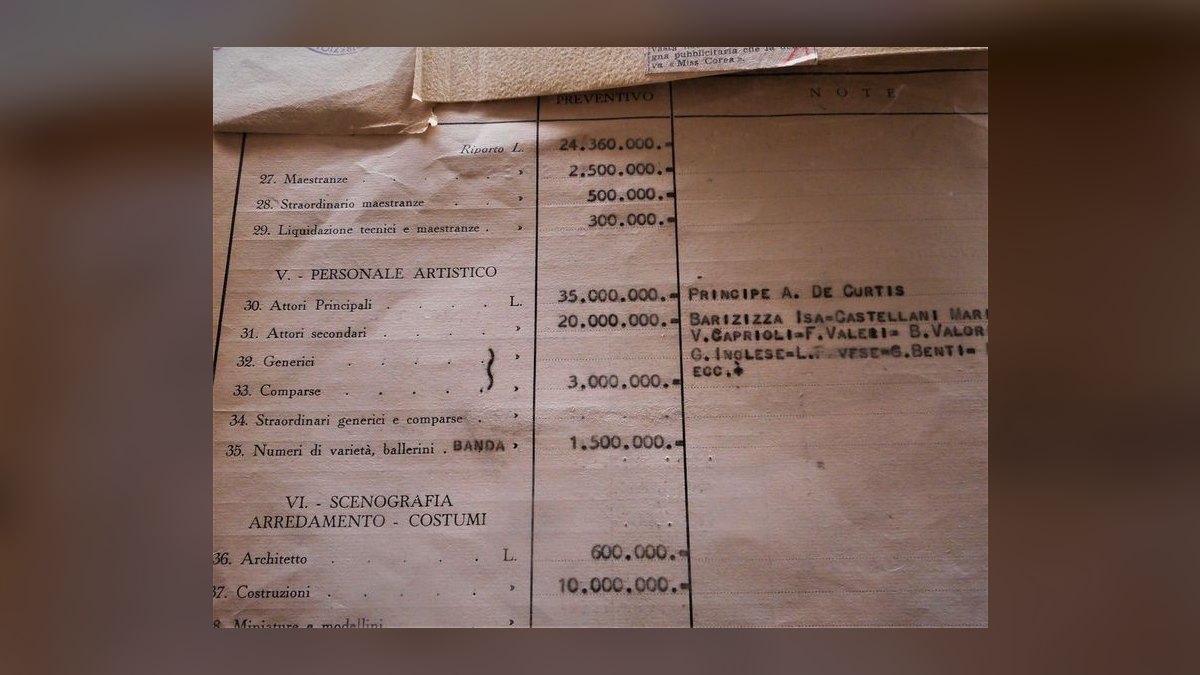 gna pubblicitaria che la
va « Miss Corea ».
PREVENTIVO NOTE
Riporto L. 24.360.000.=
27. Maestranze . . . . . . » 2.500.000.=
28. Straordinario maestranze . . » 500.000.=
29. Liquidazione tecnici e maestranze . » 300.000.=
V. - PERSONALE ARTISTICO
30. Attori Principali . . . . . L. 35.000.000.= PRINCIPE A. DE CURTIS
31. Attori secondari . . . . . » 20.000.000.= BARIZIZZA ISA=CASTELLANI MARI
V.CAPRIOLI=F.VALERI= B.VALOR
32. Generici . . . . . »
G.INGLESE= =G.BENTI=
ECC.
33. Comparse . . . . . » 3.000.000.=
34. Straordinari generici e comparse . »
35. Numeri di varietà, ballerini . BANDA » 1.500.000.=
VI. - SCENOGRAFIA
ARREDAMENTO - COSTUMI
36. Architetto . . . . . L. 600.000.=
37. Costruzioni . . . . . » 10.000.000.=
8. Miniature e modellini »